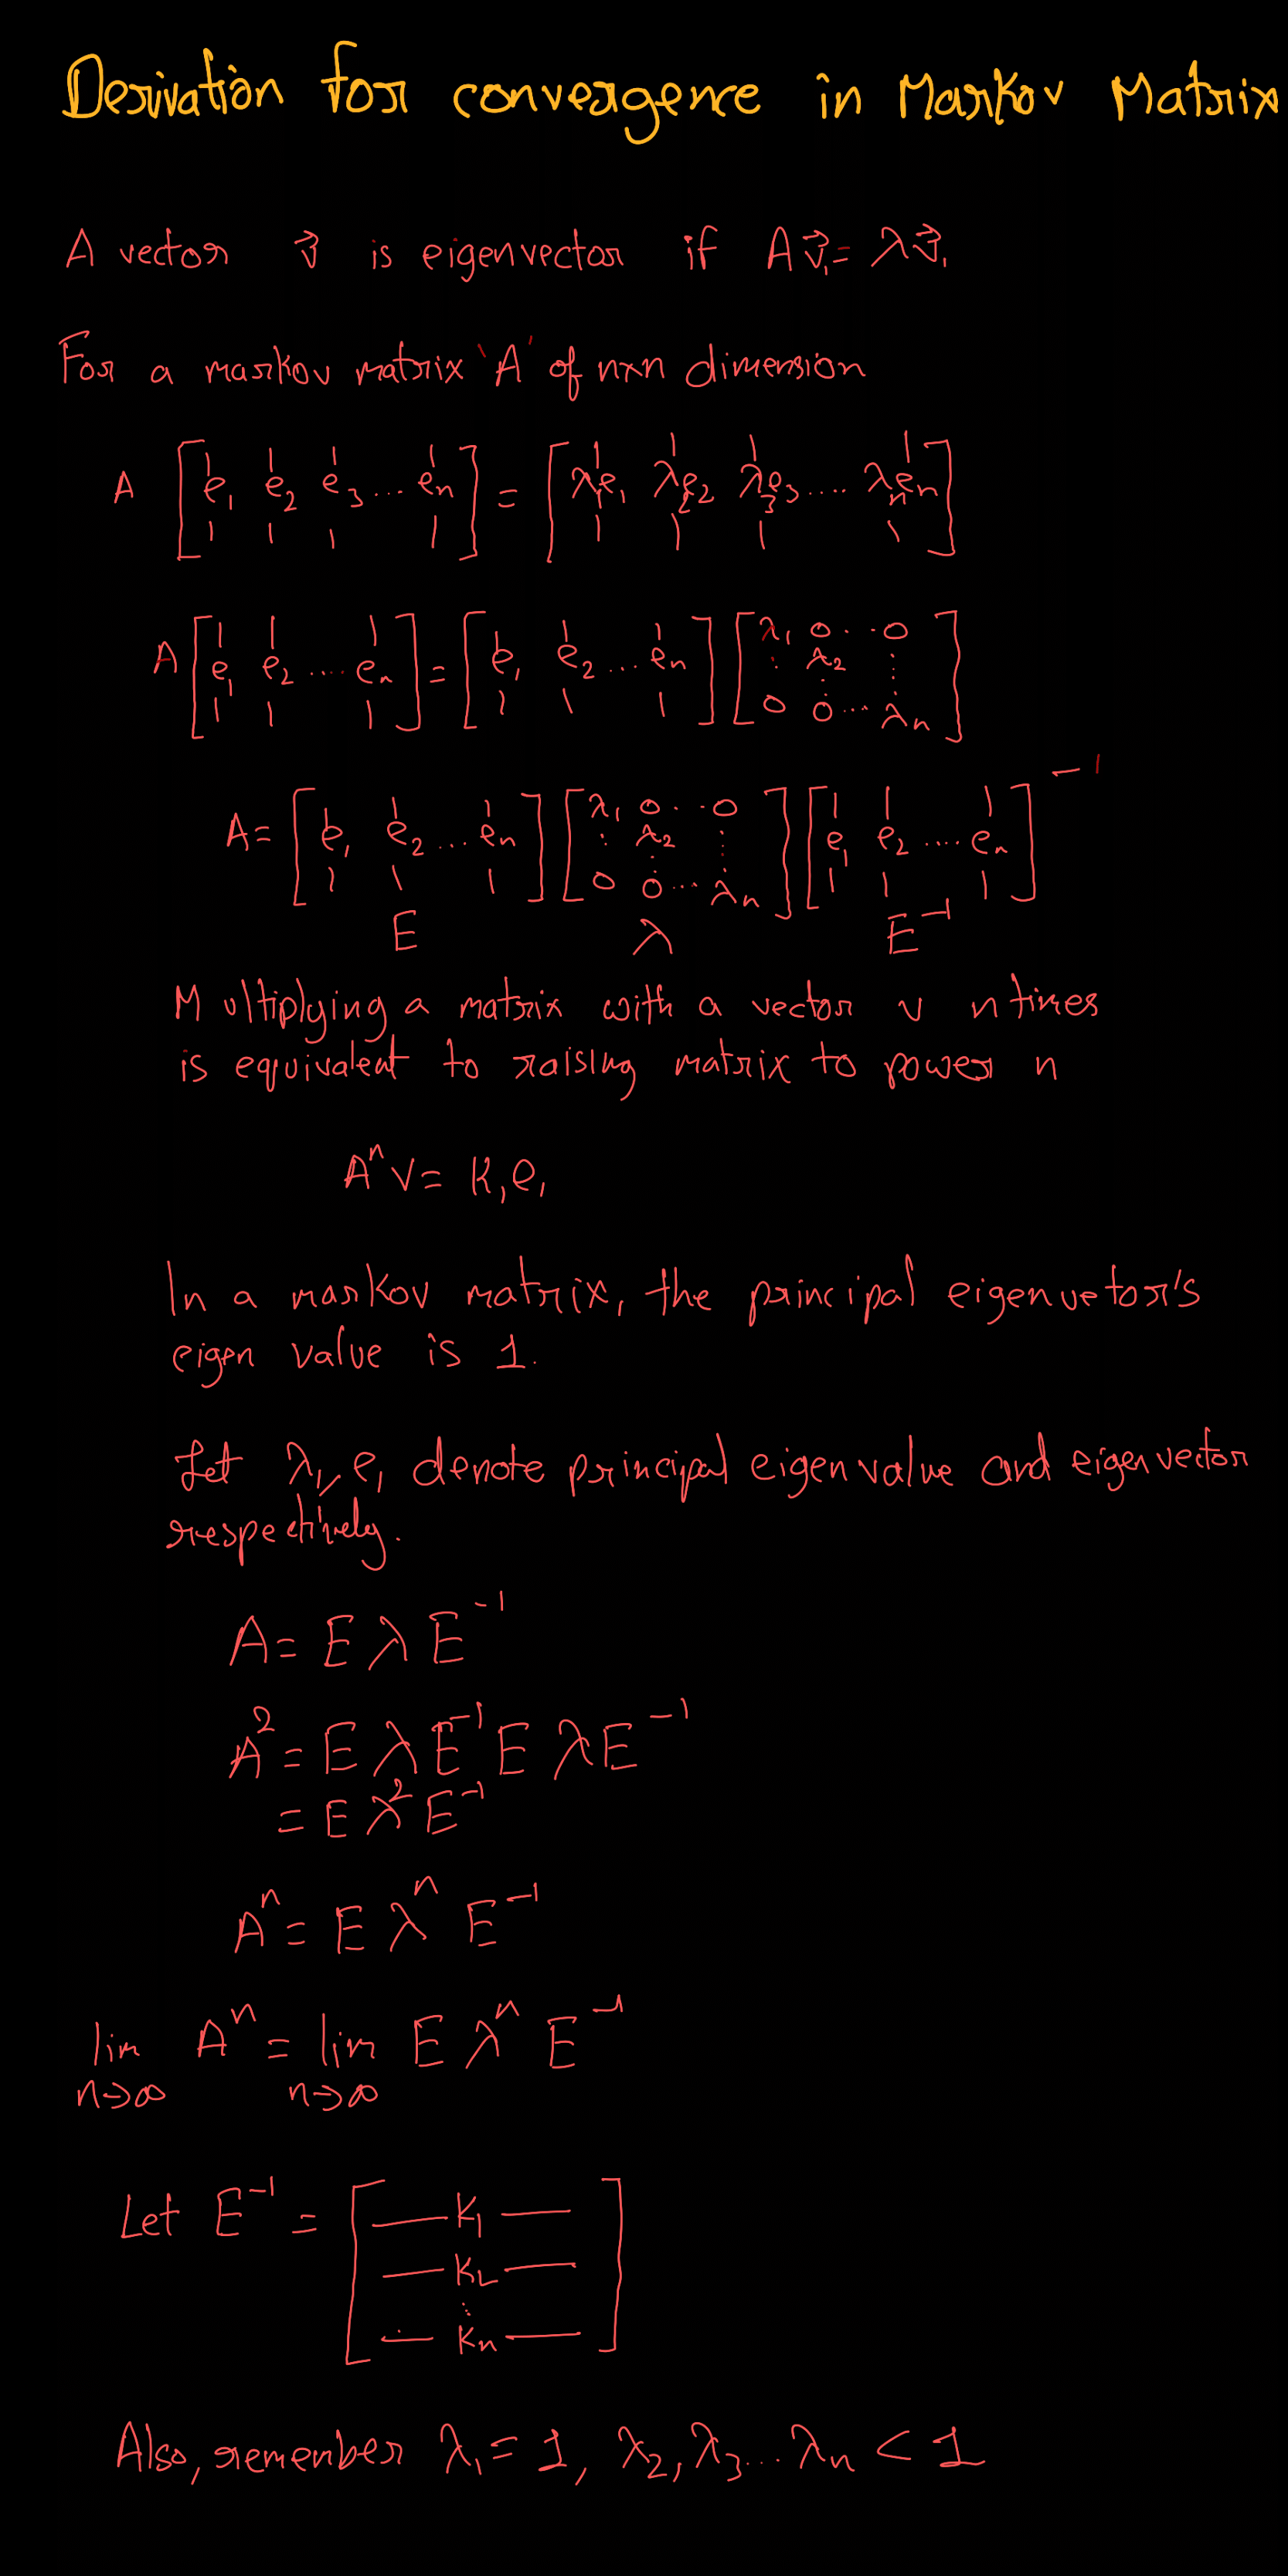 Derivation for convergence in Markov Matrix
A vector v⃗ is eigenvector if Av⃗₁ = λv⃗₁
For a markov matrix 'A' of nxn dimension
A [e₁ e₂ e₃ ... eₙ] = [λ₁e₁ λ₂e₂ λ₃e₃ .... λₙeₙ]
A [e₁ e₂ .... eₙ] = [e₁ e₂ ... eₙ] [λ₁ 0 ... 0 ⋮ λ₂ ⋮ 0 0 ... λₙ]
A = [e₁ e₂ ... eₙ] [λ₁ 0 ... 0 ⋮ λ₂ ⋮ 0 0 ... λₙ] [e₁ e₂ .... eₙ]⁻¹
E λ E⁻¹
Multiplying a matrix with a vector v n times
is equivalent to raising matrix to power n
Aⁿv = K₁e₁
In a markov matrix, the principal eigenvetor's
eigen value is 1.
Let λ₁, e₁ denote principal eigen value and eigenvector
respectively.
A = E λ E⁻¹
A² = E λ E⁻¹ E λ E⁻¹
= E λ² E⁻¹
Aⁿ = E λⁿ E⁻¹
lim Aⁿ = lim E λⁿ E⁻¹
n→∞ n→∞
Let E⁻¹ = [— K₁ —
— K₂ —
⋮
— Kₙ —]
Also, remember λ₁ = 1, λ₂, λ₃ ... λₙ < 1